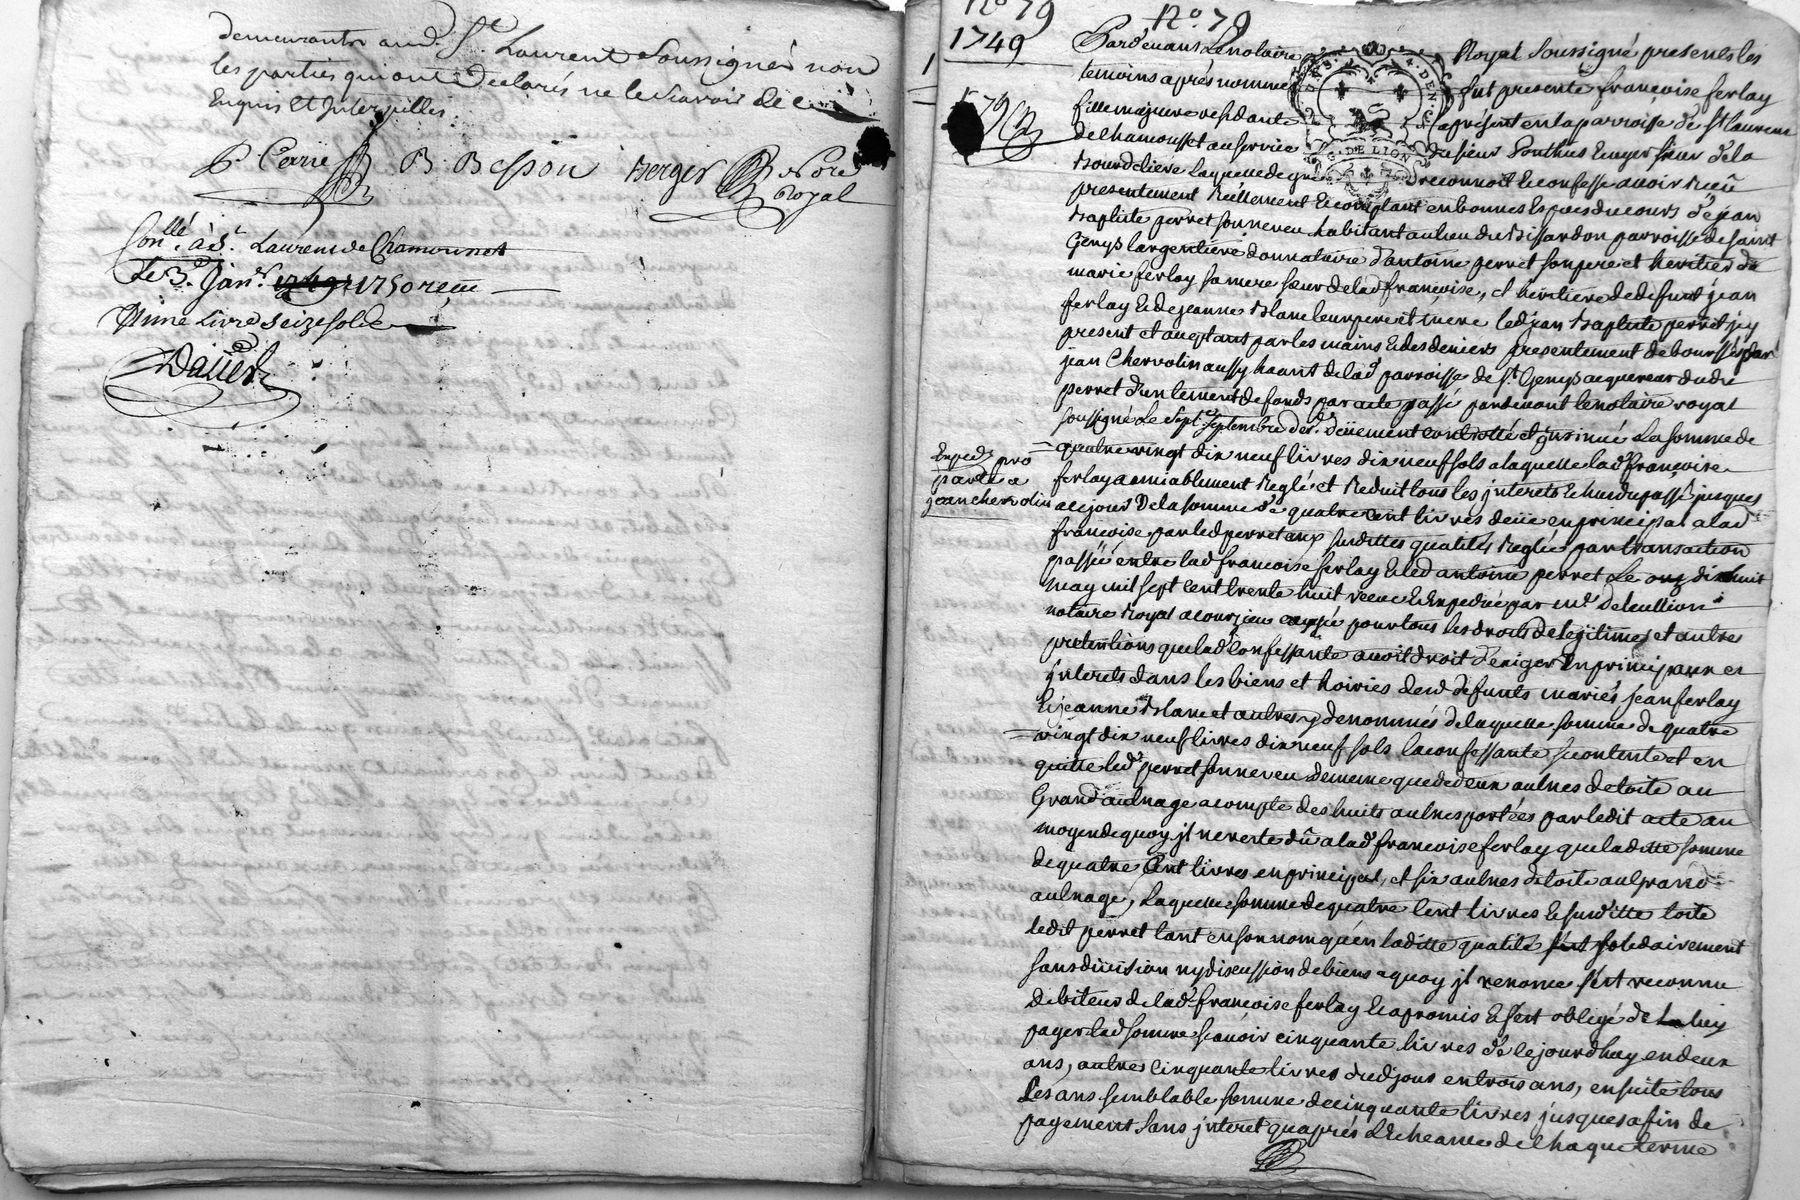 demeurants aud. St. Laurent soussignés non
les parties qui ont declarés ne le scavoir de ce
Enquis et Interpellés
P Cerrie B Besson Berger Nore Royal
Conllé. à St. Laurent de Chamousset
Le 3e. Janr. 1749 1750 receu
Une Livre seize sols
Daüer
No 79
1749
No. 79
Pardevant Le notaire Royal Soussigné presents les
temoins aprés nommés fut presente françoise ferlay
fille majeure residante apresent en la parroisse de St laurent
de Chamousset au service du sieur Souttus Ecuyer sieur de la
Bourdeliere laquelle de gré reconnoit et confesse avoir reçû
presentement Réellement Et comptant en bonnes Especes du cours de jean
Baptiste perret son neveu habitant au lieu du Bissardon parroisse de saint
Genys largentiere donnataire d'antoine perret son pere et heritier de
marie ferlay sa mere soeur de lad françoise, et heritiere de defunt jean
ferlay Et de jeanne Blanc leur pere et mere led jean Baptiste perret jcy
present et acceptant par les mains Et des deniers presentement deboursés par
jean Chervolin aussy hãant de lad parroisse de St Genys acquereur dudit
perret d'un tement de fonds par acte passé pardevant le notaire royal
soussigné Le sept septembre der. düement controllé et jnsinué La somme de
quatre vingt dix neuf livres dix neuf sols a laquelle lad françoise
Exped pro
partie a
jean chervolin
ferlay a amiablement Reglé et Reduit tous les jnterets Echus du passé jusques
a ce jour De la somme de quatre cent livres deüe en principal a lad
francoise par led perret aux susdittes qualités Reglée par transaction
passée entre lad francoise ferlay Et led antoine perret Le dix huit
may mil sept cent trente huit receue Et Expediée par me
notaire Royal a courzieu pour tous les droits de legitime et autres
pretentions que lad Confessante avoit droit d'exiger En principaux et
jnterets dans les biens et hoiries desd defunts mariés jean ferlay
Et jeanne Blanc et autres y denommés de laquelle somme de quatre
vingt dix neuf livres dix neuf sols la confessante se contente et en
quitte led perret son neveu De meme que de deux aulnes de toile au
Grand aulnage a compte des huits aulnes portées par ledit acte au
moyen de quoy jl ne reste dû a lad francoise ferlay que laditte somme
de quatre Cent livres en principal, et six aulnes de toile au grand
aulnage, Laquelle somme de quatre Cent livres Et susditte toile
ledit perret tant en son nom qu'en laditte qualité solidairement
sans division ny discussion de biens a quoy jl renonce s'est reconnu
debiteur de lad francoise ferlay Et a promis Et s'est obligé de luy
payer lad somme scavoir cinquante livres de ce jourd'huy en deux
ans, autres cinquante livres dud jour en trois ans, ensuite tous
les ans semblable somme de cinquante livres jusques a fin de
payement sans jnteret qu'aprés L'echeance de chaque terme